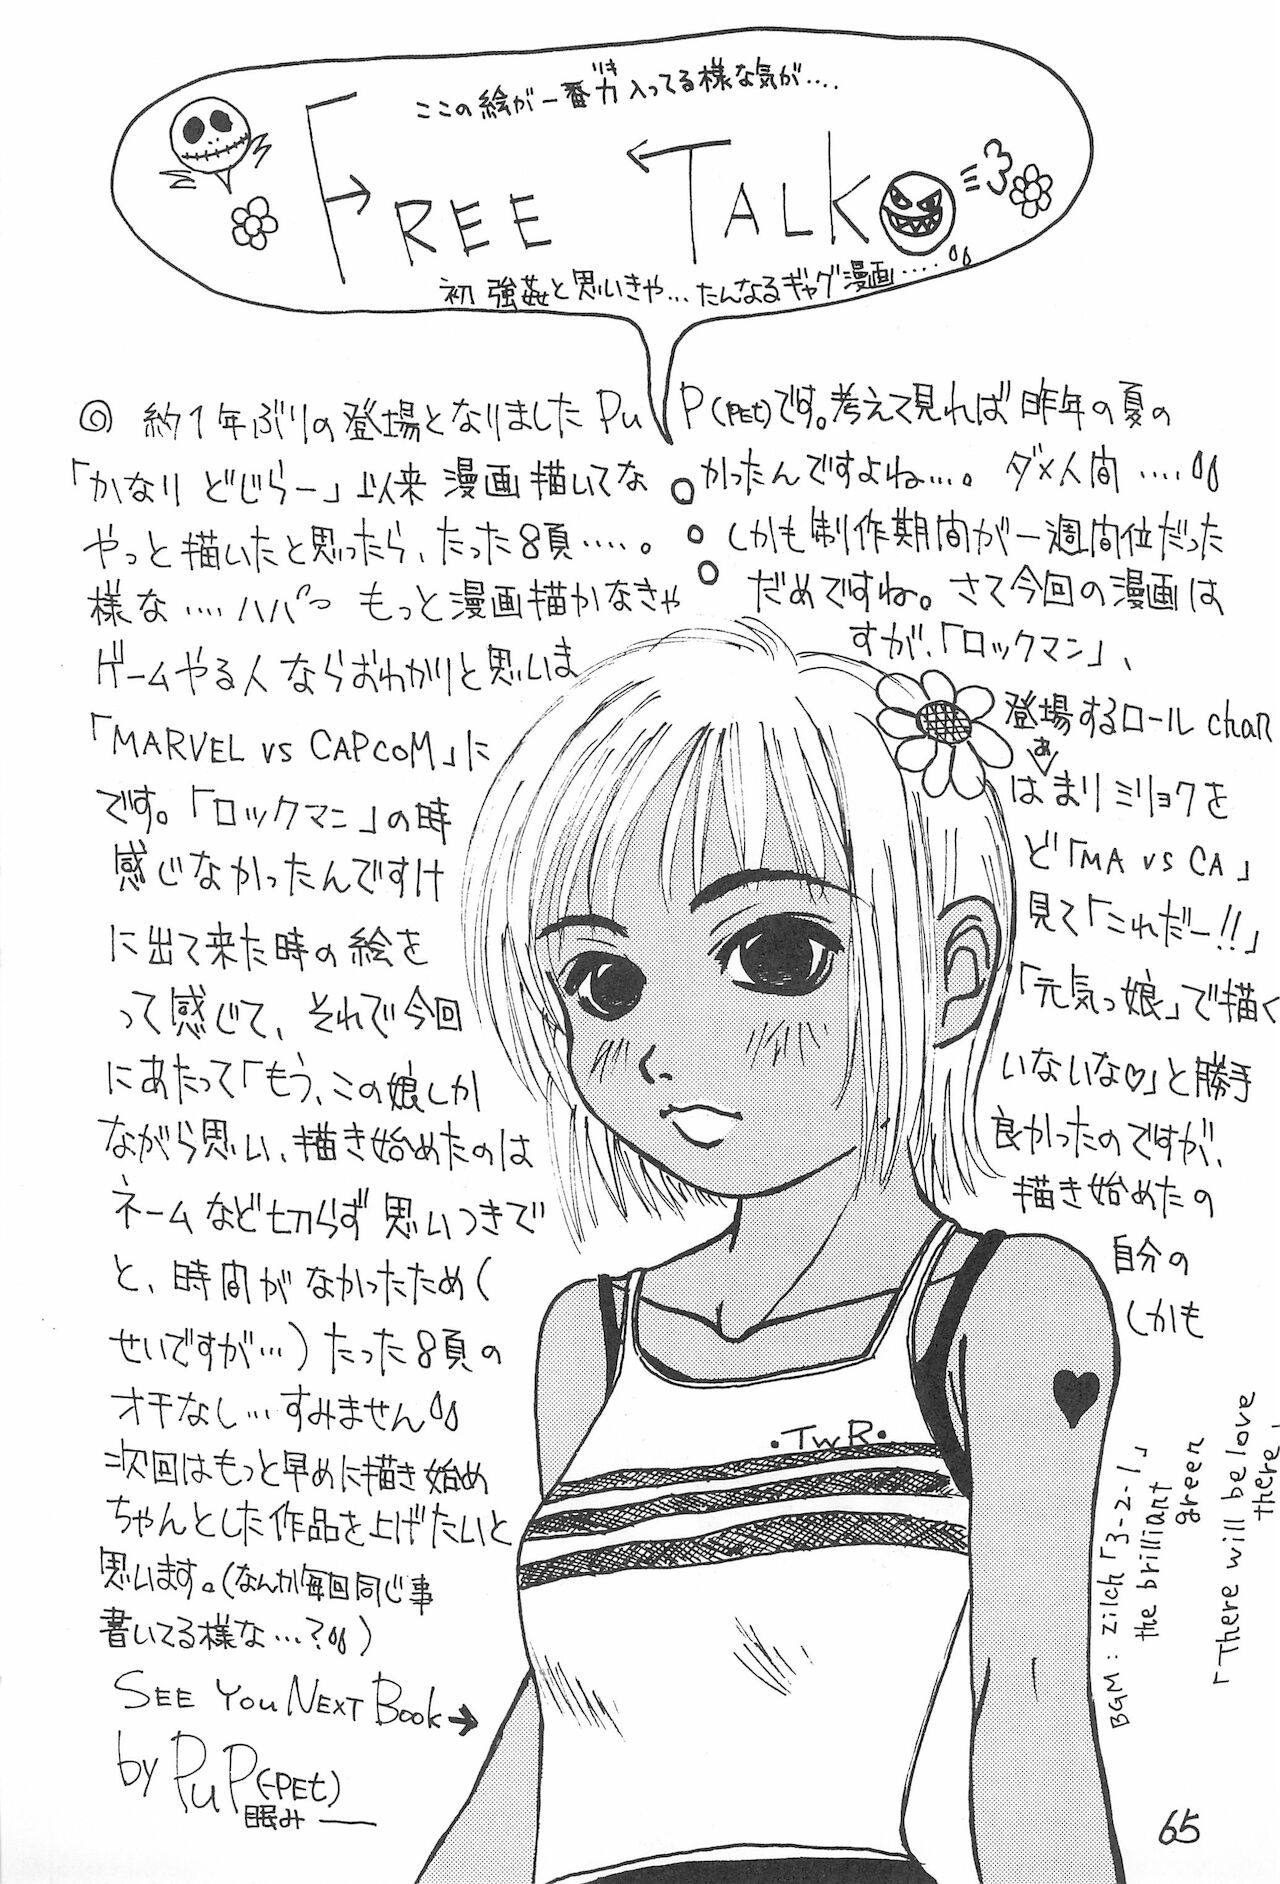 ここの絵が一番力入ってる様な気が‥‥
FREE TALK
初 強姦と思いきや…たんなるギャグ漫画‥‥
◎ 約1年ぶりの登場となりました PuP(PEt)です。考えて見れば昨年の夏の
「かなり どじらー」以来 漫画描いてなかったんですよね…。 ダメ人間‥‥
やっと描いたと思ったら、たった8頁‥‥。しかも制作期間が一週間位だった
様な‥‥ハハハ もっと漫画描かなきゃだめですね。さて今回の漫画は
ゲームやる人ならおわかりと思いますが、「ロックマン」、
「MARVEL vs CAPCOM」に登場するロール chan
です。「ロックマン」の時はあまりミリョクを
感じなかったんですけど「MA vs CA」
に出て来た時の絵を見て「これだー!!」
って感じて、それで今回「元気っ娘」で描く
にあたって「もう、この娘しかいないな♡」と勝手
ながら思い、描き始めたのは良かったのですが、
ネームなど切らず思いつきで描き始めたの
と、時間がなかったため(自分の
せいですが…)たった8頁のしかも
オチなし…すみません
次回はもっと早めに描き始め
ちゃんとした作品を上げたいと
思います。(なんか毎回同じ事
書いてる様な…?)
SEE YOU NEXT BOOK→
by PuP(-PEt)
眠み—
・TWR・
BGM: zilch「3-2-1」
the brilliant
green
「There will be love
there」
65